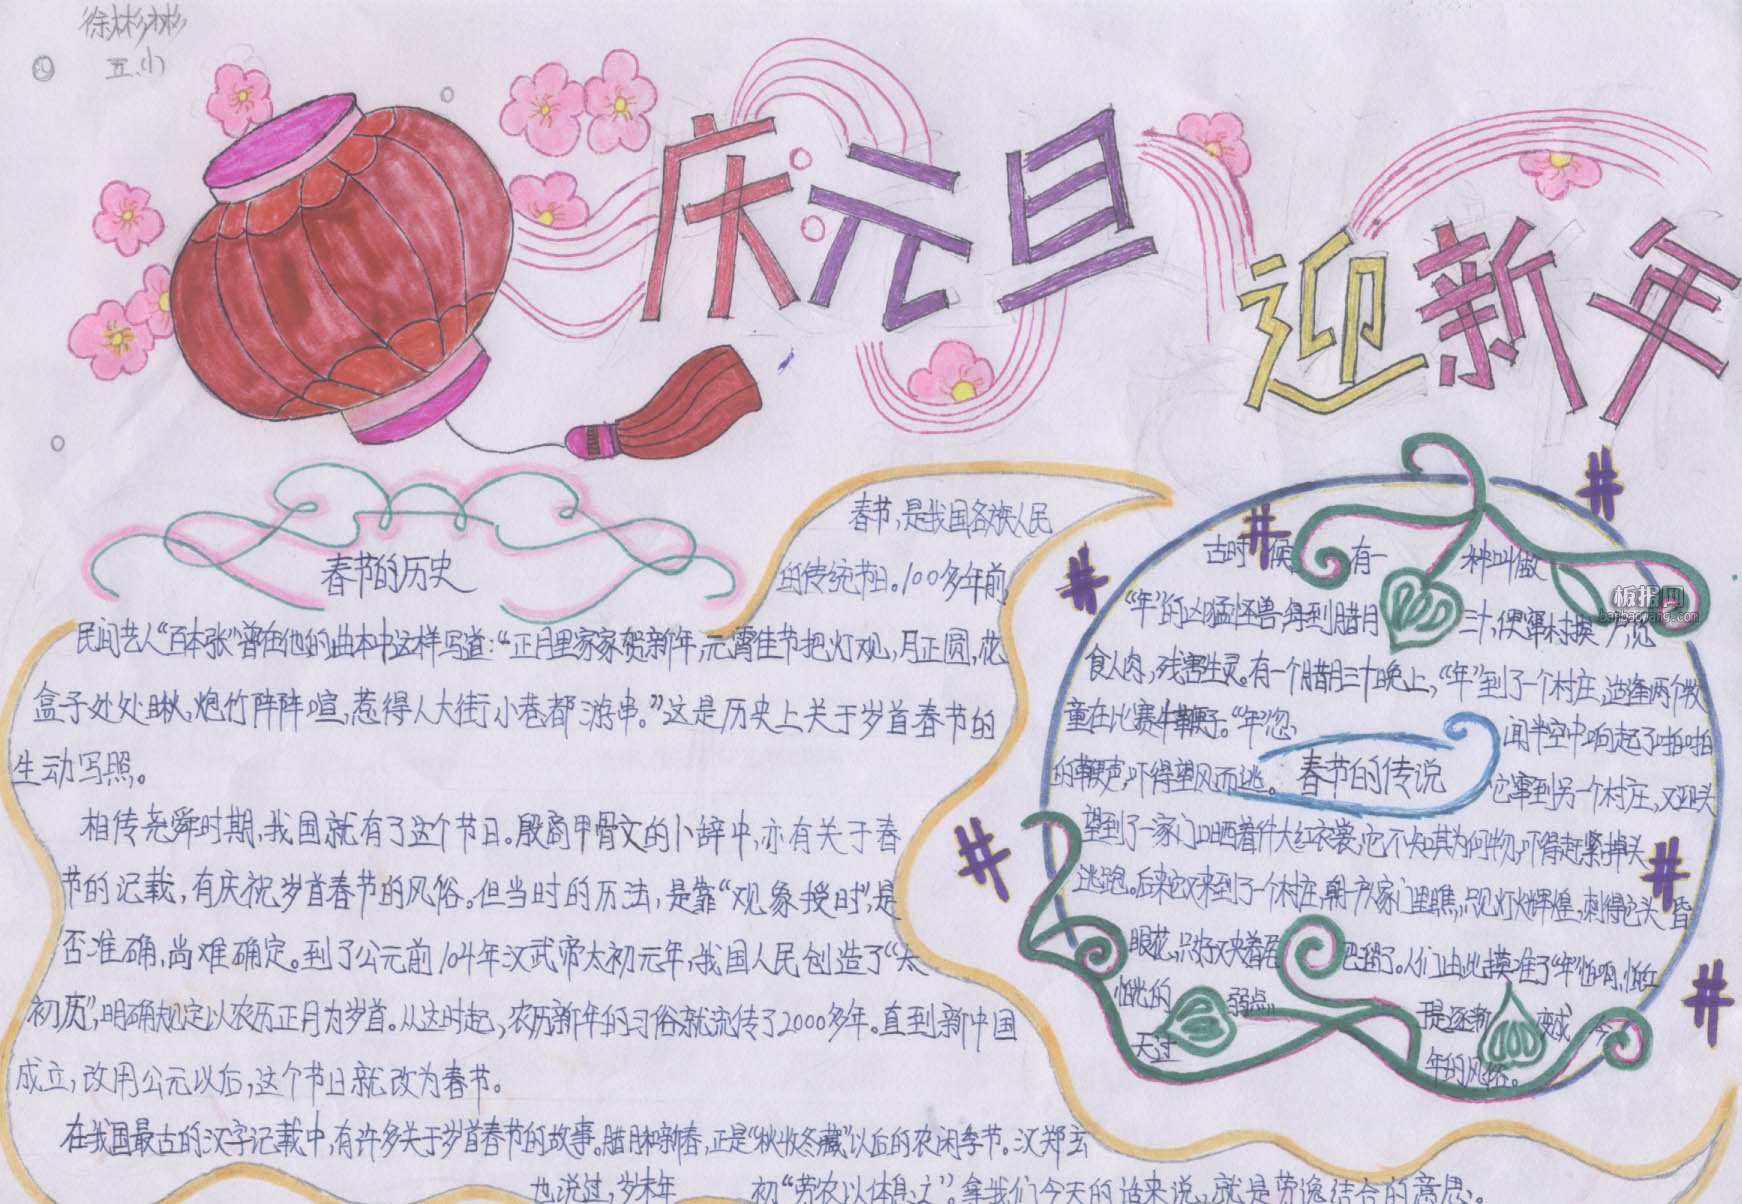 徐彬彬
五.小
庆元旦
迎新年
春节的历史
春节,是我国各族人民
的传统节日。100多年前
民间艺人“百本张”曾在他的曲本中这样写道:“正月里家家贺新年,元霄佳节把灯观,月正圆,花
盒子处处瞅,炮竹阵阵喧,惹得人大街小巷都游串。”这是历史上关于岁首春节的
生动写照。
相传尧舜时期,我国就有了这个节日。殷商甲骨文的卜辞中,亦有关于春
节的记载,有庆祝岁首春节的风俗。但当时的历法,是靠“观象授时”,是
否准确,尚难确定。到了公元前104年汉武帝太初元年,我国人民创造了“太
初历”,明确规定以农历正月为岁首。从这时起,农历新年的习俗就流传了2000多年。直到新中国
成立,改用公元以后,这个节日就改为春节。
在我国最古的汉字记载中,有许多关于岁首春节的故事。腊月和新春,正是“秋收冬藏”以后的农闲季节。汉郑玄
也说过,岁末年初“劳农以休息之”。拿我们今天的话来说,就是劳逸结合的意思。
古时候有一种叫做
“年”的凶猛怪兽,每到腊月三十,便窜村挨户,觅
食人肉,残害生灵。有一个腊月三十晚上,“年”到了一个村庄,适逢两个牧
童在比赛牛鞭子。“年”忽闻半空中响起了啪啪
的鞭声,吓得望风而逃。它窜到另一个村庄,又迎头
春节的传说
望到了一家门口晒着件大红衣裳,它不知其为何物,吓得赶紧掉头
逃跑。后来它又来到了一个村庄,朝一户家门里瞧,只见灯火辉煌,刺得它头昏
眼花,只好又夹着尾巴溜了。人们由此摸准了“年”怕响,怕红
怕光的弱点于是逐渐变成今
天过年的风俗。
板报网
banbaowang.com